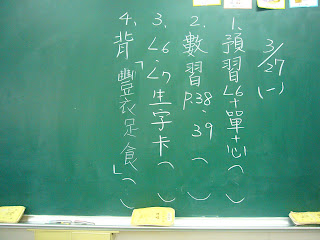 3/27(一)
1.預習L6+單+心( )
2.數習P.38、39( )
3.L6、L7生字卡( )
4.背「豐衣足食」( )